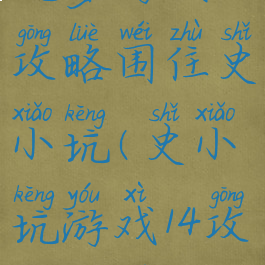 gōng lüè wéi zhù shǐ
攻略围住史
xiǎo kēng shǐ xiǎo
小坑(史小
kēng yóu xì gōng
坑游戏14攻